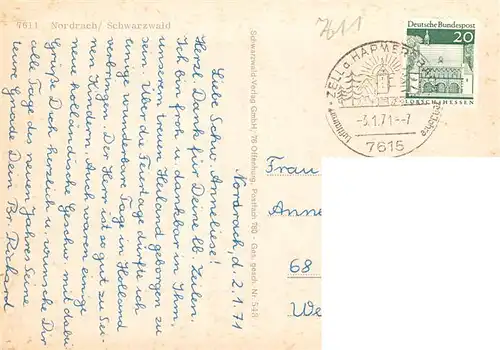 7611 Nordrach/Schwarzwald
Nordrach, d. 2.1.71
Liebe Schw. Anneliese!
Herzl. Dank für Deine lb. Zeilen.
Ich bin froh u. dankbar in Ihm,
unserem treuen Heiland geborgen zu
sein. Über die Feiertage durfte ich
einige wunderbare Tage in Holland
verbringen. Der Herr ist so gut zu Sei-
nen Kindern. Auch waren einige
neue holländische Geschw. mit dabei
Grüße Dich herzlich u. wünsche Dir
alle Tage des neuen Jahres Seine
teure Gnade Dein Br. Richard
Schwarzwald-Verlag GmbH, 76 Offenburg, Postfach 780 - Ges. gesch. Nr. 548
7611
ZELL a HARMERSB
-3.1.71--7
7615
Deutsche Bundespost
20
LORSCH/HESSEN
Frau
Anne
68
We